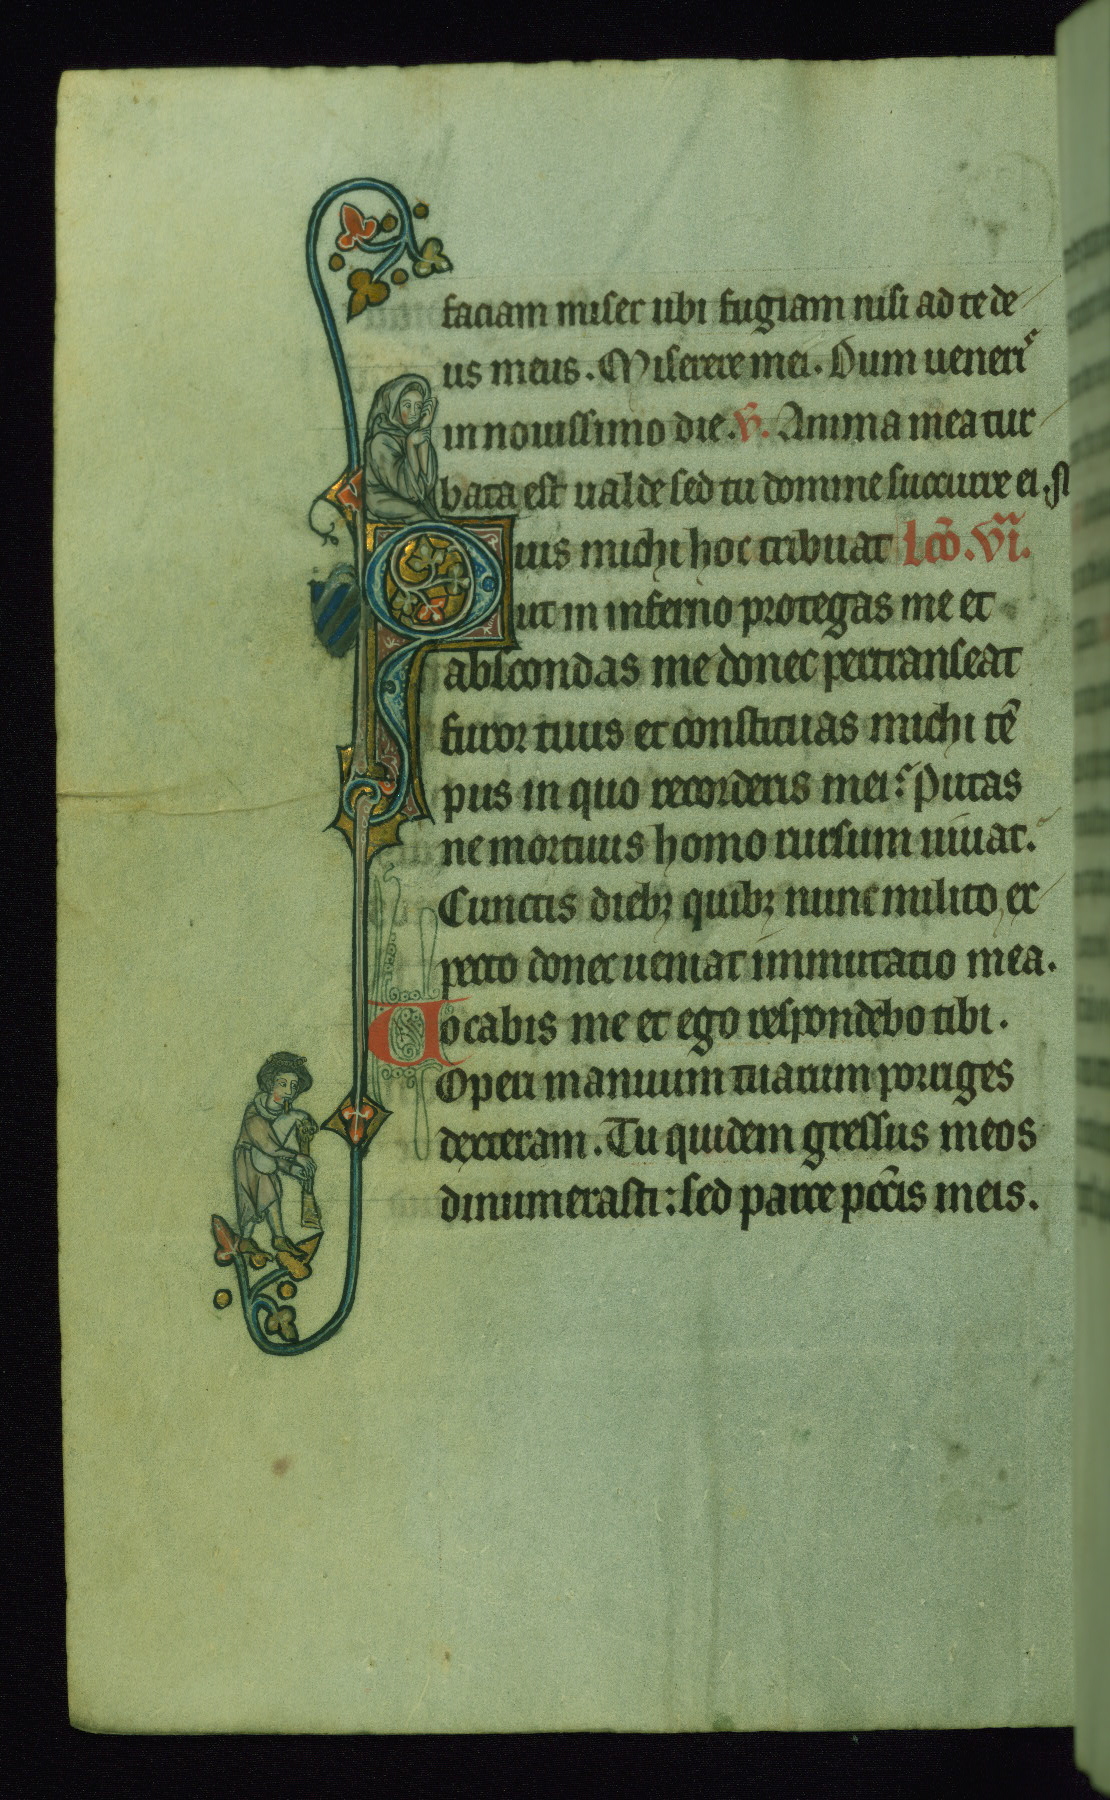 faciam miser ubi fugiam nisi ad te de
us meus. Miserere mei. Dum ueneris
in nouissimo die. V. Anima mea tur
bata est ualde sed tu domine succurre ei.
Quis michi hoc tribuat Lc̄o. VIa.
ut in inferno protegas me et
abscondas me donec pertranseat
furor tuus et constituas michi tē
pus in quo recorderis mei? Putas
ne mortuus homo rursum uiuat.
Cunctis dieb; quib; nunc milito, ex
pecto donec ueniat immutatio mea.
Uocabis me et ego respondebo tibi.
Operi manuum tuarum porriges
dexteram. Tu quidem gressus meos
dinumerasti: sed parce pc̄cis meis.